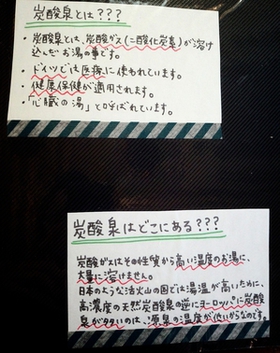 炭酸泉とは???
・炭酸泉とは、炭酸ガス(二酸化炭素)が溶け
込んだお湯の事です。
・ドイツでは医療に使われています。
・健康保険が適用されます。
・「心臓の湯」と呼ばれています。
炭酸泉はどこにある???
炭酸ガスはその性質から高い温度のお湯に、
大量に溶けません。
日本のような活火山の国では湯温が高いために、
高濃度の天然炭酸泉の逆にヨーロッパに炭酸
泉が多いのは、源泉の温度が低いからなのです。